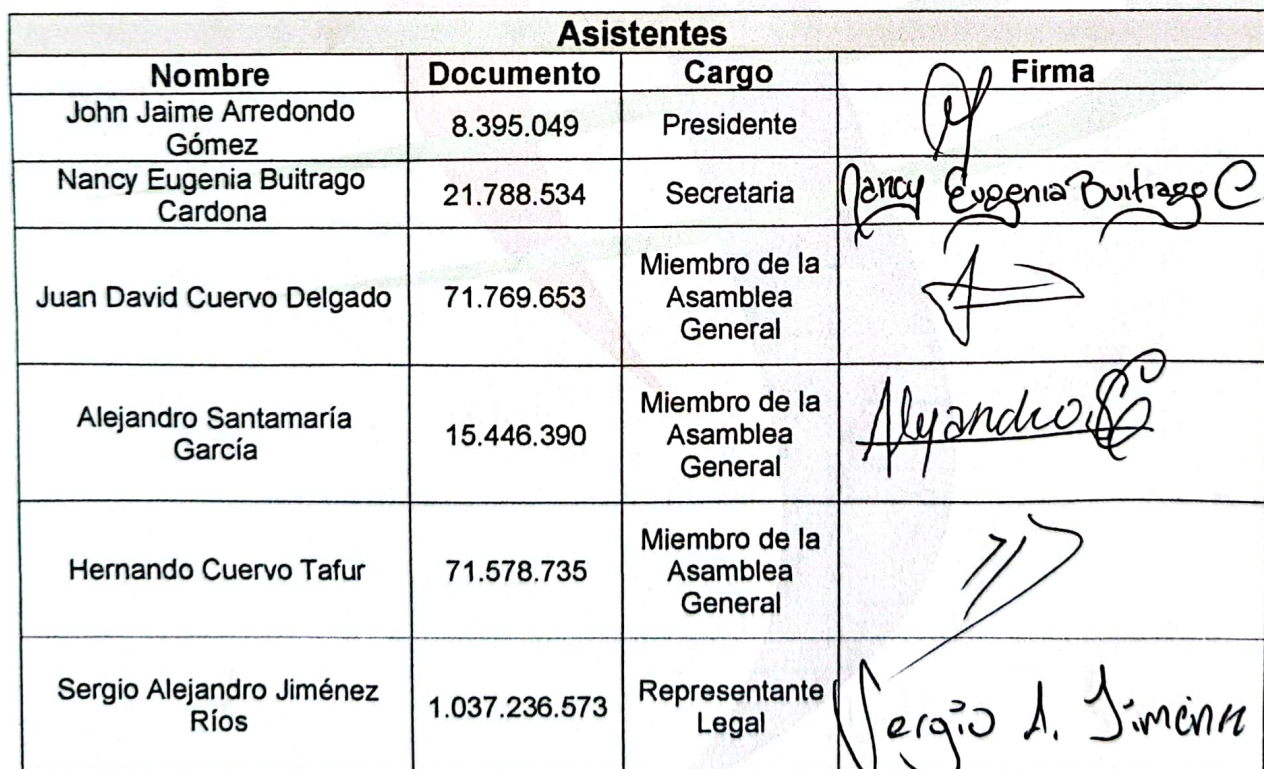 Asistentes
Nombre Documento Cargo Firma
John Jaime Arredondo
Gómez
8.395.049 Presidente
Nancy Eugenia Buitrago
Cardona
21.788.534 Secretaria Nancy Eugenia Buitrago C.
Juan David Cuervo Delgado 71.769.653
Miembro de la
Asamblea
General
Alejandro Santamaría
García
15.446.390
Miembro de la
Asamblea
General
Alejandro
Hernando Cuervo Tafur 71.578.735
Miembro de la
Asamblea
General
Sergio Alejandro Jiménez
Ríos
1.037.236.573
Representante
Legal
Sergio A. Jiménez